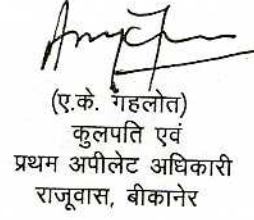 (ए.के. गहलोत)
कुलपति एवं
प्रथम अपीलेट अधिकारी
राजूवास, बीकानेर